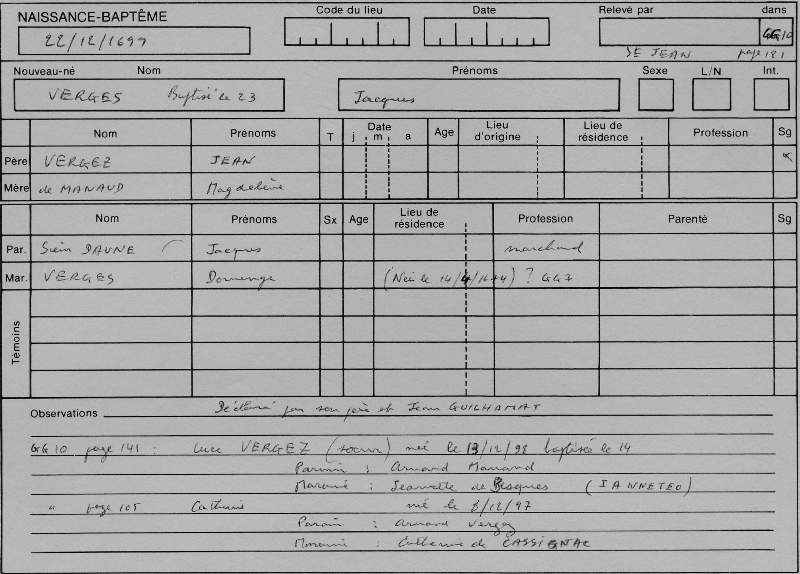 NAISSANCE-BAPTÊME Code du lieu Date Relevé par dans
22/12/1699 GG10
St JEAN page 181
Nouveau-né Nom Prénoms Sexe L/N Int.
VERGES Baptisé le 23 Jacques
Nom Prénoms T Date j m a Age Lieu d'origine Lieu de résidence Profession Sg
Père VERGEZ JEAN x
Mère de MANAUD Magdeleine
Nom Prénoms Sx Age Lieu de résidence Profession Parenté Sg
Par. Sieur DAUNE Jacques marchand
Mar. VERGES Domenge (Née le 14/4/1674) ? GG7
Témoins
Observations Déclaré par son père et Jean GUILHAMAT
GG 10 page 141 : Luce VERGEZ (soeur) née le 13/12/98 baptisée le 14
Parrain : Arnaud Manaud
Marraine : Jeannette de Besques (JANNETEO)
" page 105 Catherine née le 8/12/97
Parrain : Arnaud Vergez
Marraine : Catherine de CASSIGNAC